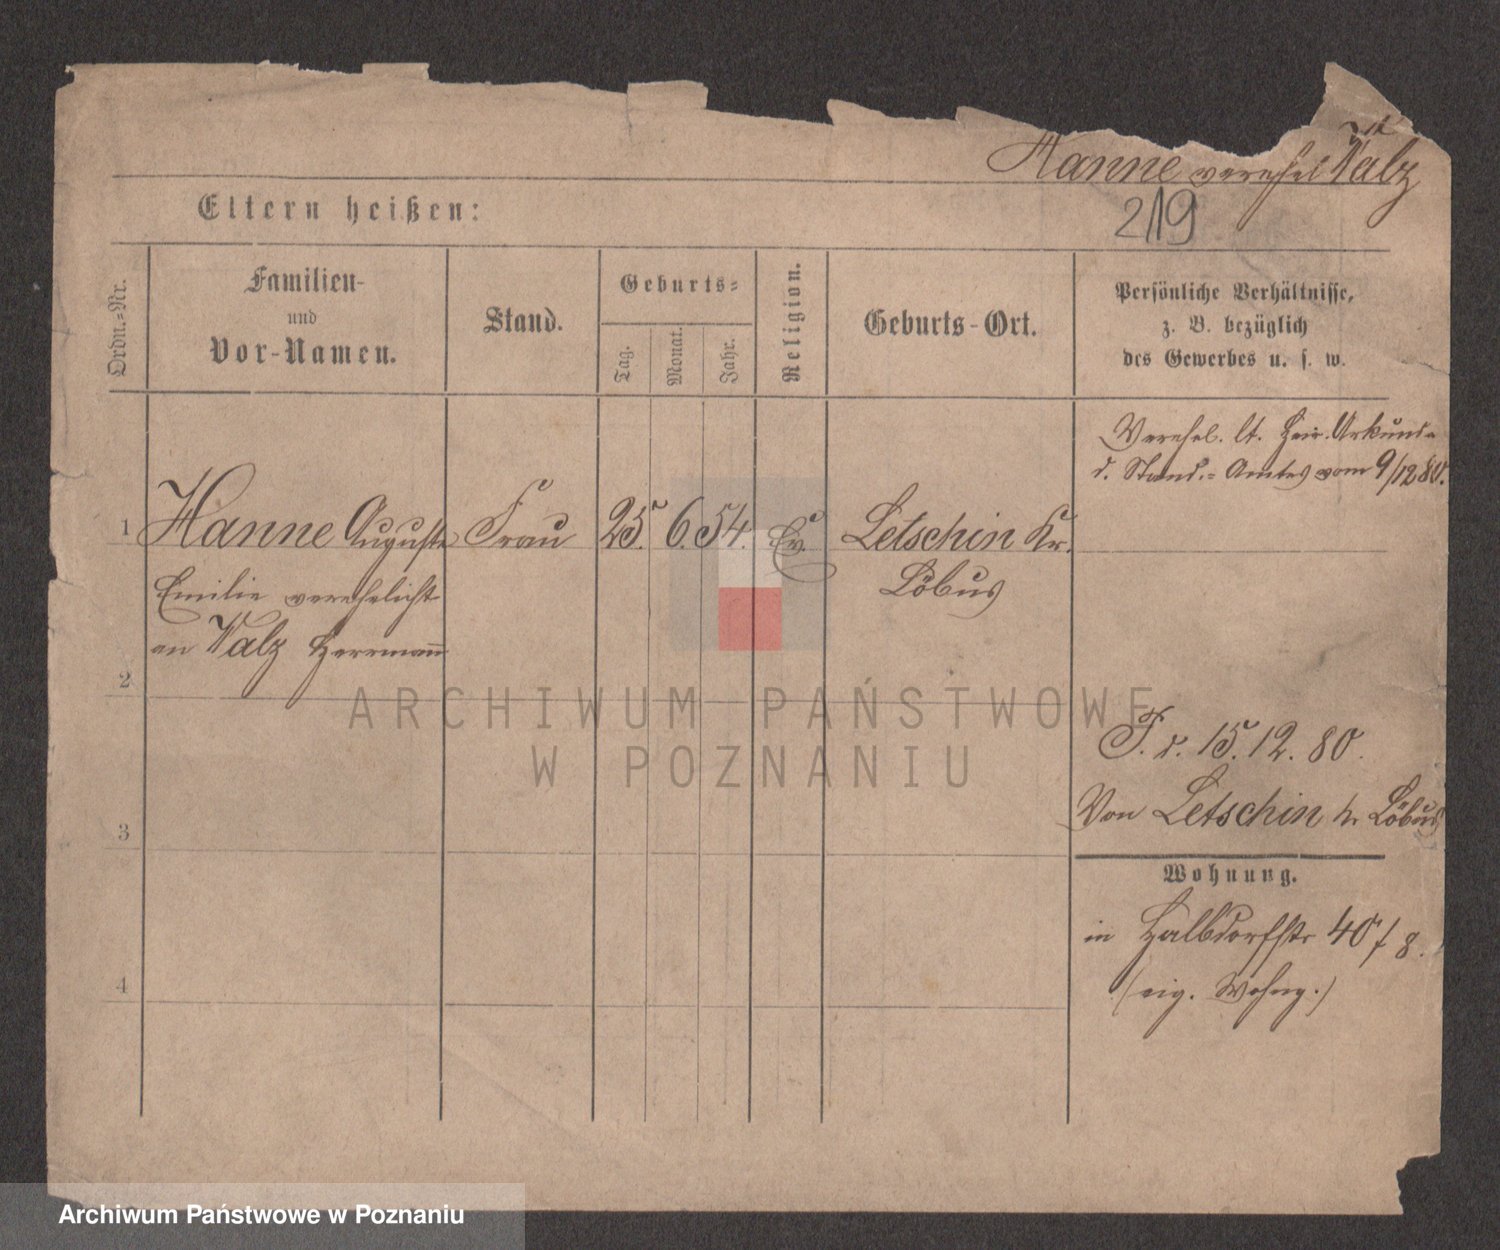 Hanne verehel Walz
219
Eltern heißen:
Ordn.-Nr.
Familien-
und
Vor-Namen.
Stand.
Geburts-
Tag.
Monat.
Jahr.
Religion.
Geburts-Ort.
Persönliche Verhältnisse,
z. B. bezüglich
des Gewerbes u. s. w.
Verehel. lt. Heir. Urkund-
d. Stand.- Amtes vom 9/12 80.
1 Hanne Auguste Frau 25. 6. 54. Ev. Letschin Kr.
Emilie verehelicht Löbus
an Walz Herrmann
2
ARCHIWUM PAŃSTWOWE
W POZNANIU
F. d. 15. 12. 80.
Von Letschin Kr Löbus
3
Wohnung.
in Halbdorfstr 40 / 8.
(eig. Wohng.)
4
Archiwum Państwowe w Poznaniu